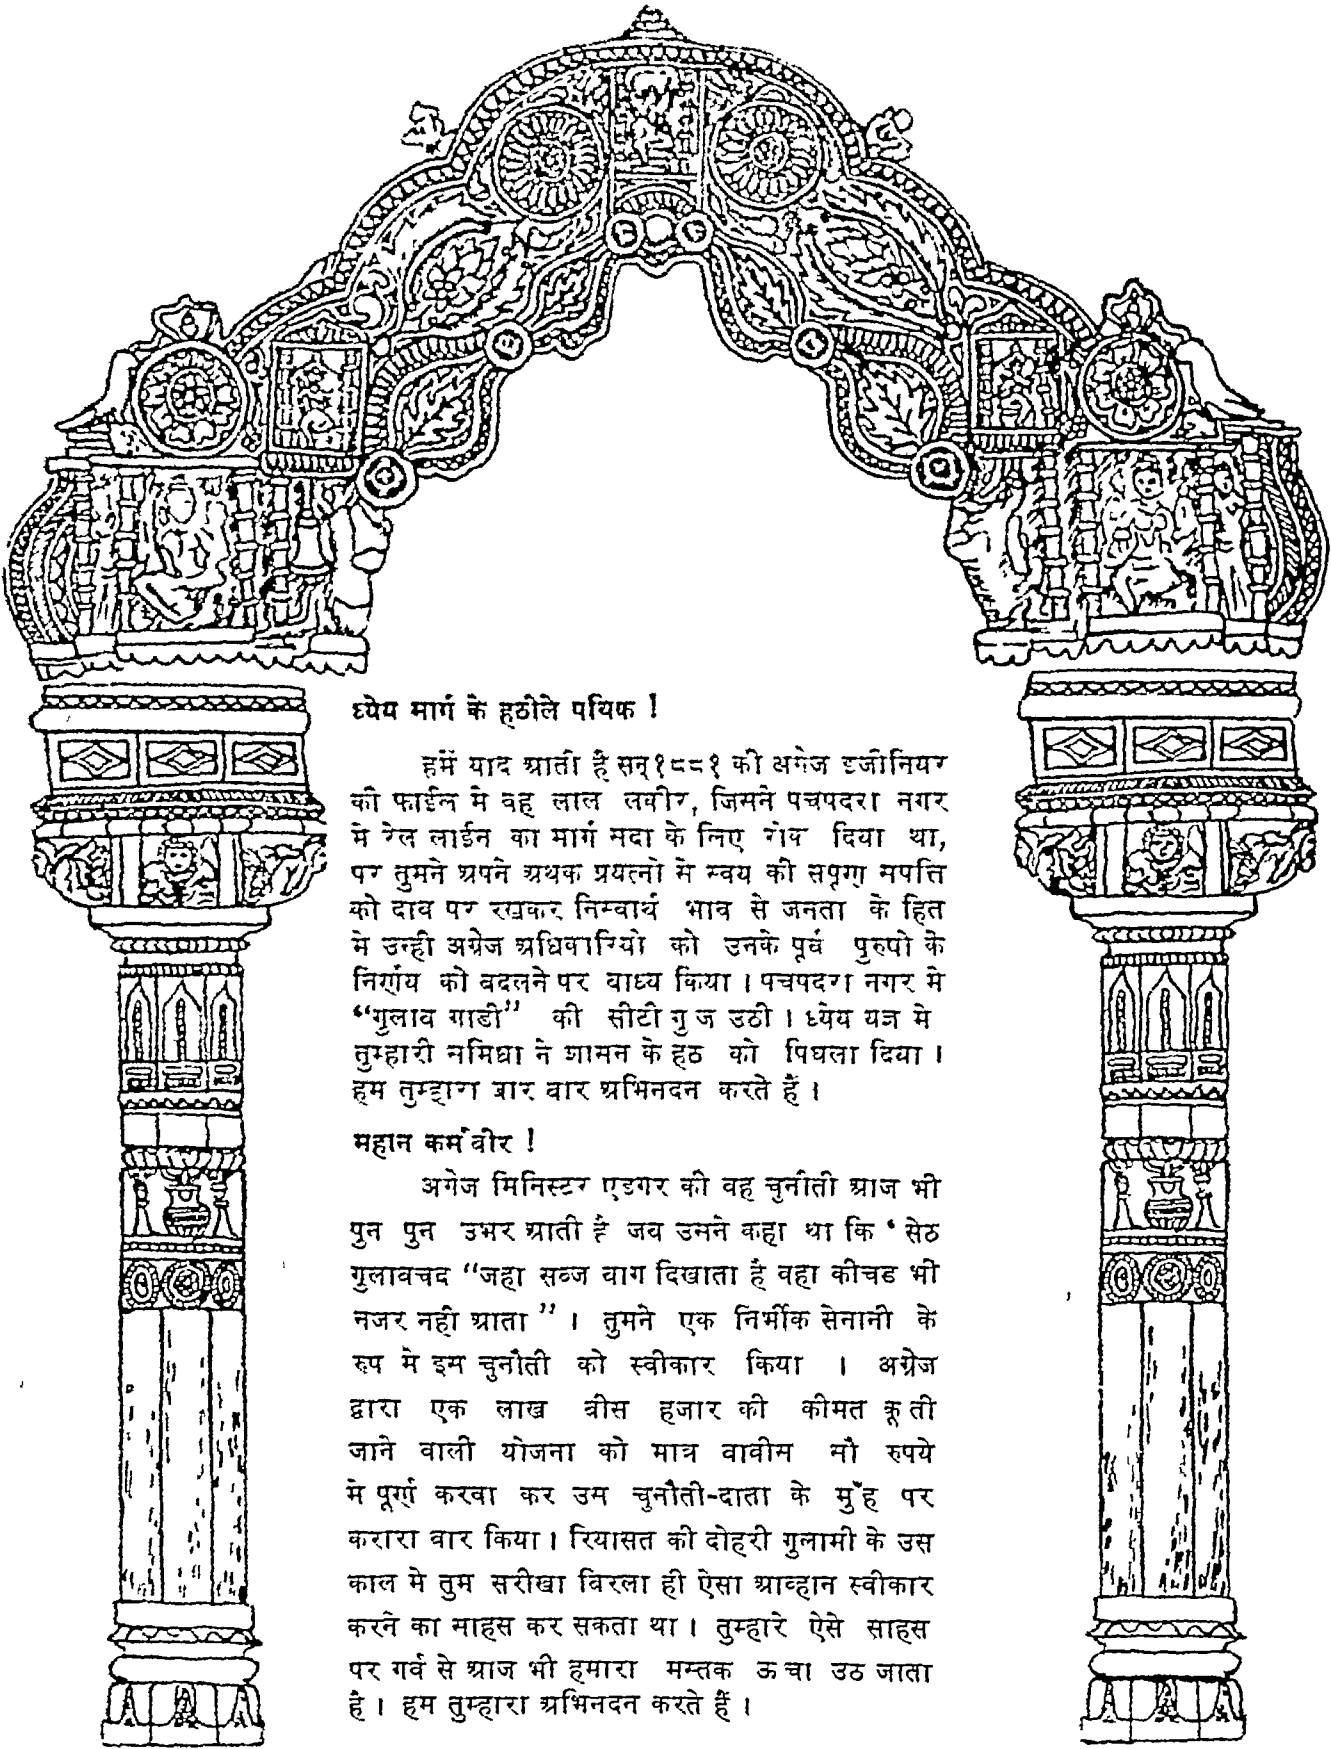 ध्येय मार्ग के हठीले पथिक !
हमें याद आती है सन् १८८१ की अग्रेज इजीनियर
की फाईल मे वह लाल लकीर, जिसने पचपदरा नगर
मे रेल लाईन का मार्ग सदा के लिए रोक दिया था,
पर तुमने अपने अथक प्रयत्नो मे स्वय की सपूर्ण सपत्ति
को दाव पर रखकर निस्वार्थ भाव से जनता के हित
मे उन्ही अग्रेज अधिकारियो को उनके पूर्व पुरुषो के
निर्णय को बदलने पर बाध्य किया । पचपदरा नगर मे
“गुलाब गाडी” की सीटी गु ज उठी । ध्येय यज्ञ मे
तुम्हारी समिधा ने शासन के हठ को पिघला दिया ।
हम तुम्हारा बार बार अभिनदन करते हैं ।
महान कर्म वीर !
अग्रेज मिनिस्टर एडगर की वह चुनौती आज भी
पुन पुन उभर आती है जब उसने कहा था कि ‘ सेठ
गुलाबचद “जहा सब्ज बाग दिखाता है वहा कीचड भी
नजर नही आता ” । तुमने एक निर्भीक सेनानी के
रुप मे इस चुनौती को स्वीकार किया । अग्रेज
द्वारा एक लाख बीस हजार की कीमत कू ती
जाने वाली योजना को मात्र बावीस सौ रुपये
मे पूर्ण करवा कर उस चुनौती-दाता के मुँह पर
करारा वार किया । रियासत की दोहरी गुलामी के उस
काल मे तुम सरीखा विरला ही ऐसा आव्हान स्वीकार
करने का साहस कर सकता था । तुम्हारे ऐसे साहस
पर गर्व से आज भी हमारा मस्तक ऊ चा उठ जाता
है । हम तुम्हारा अभिनदन करते हैं ।